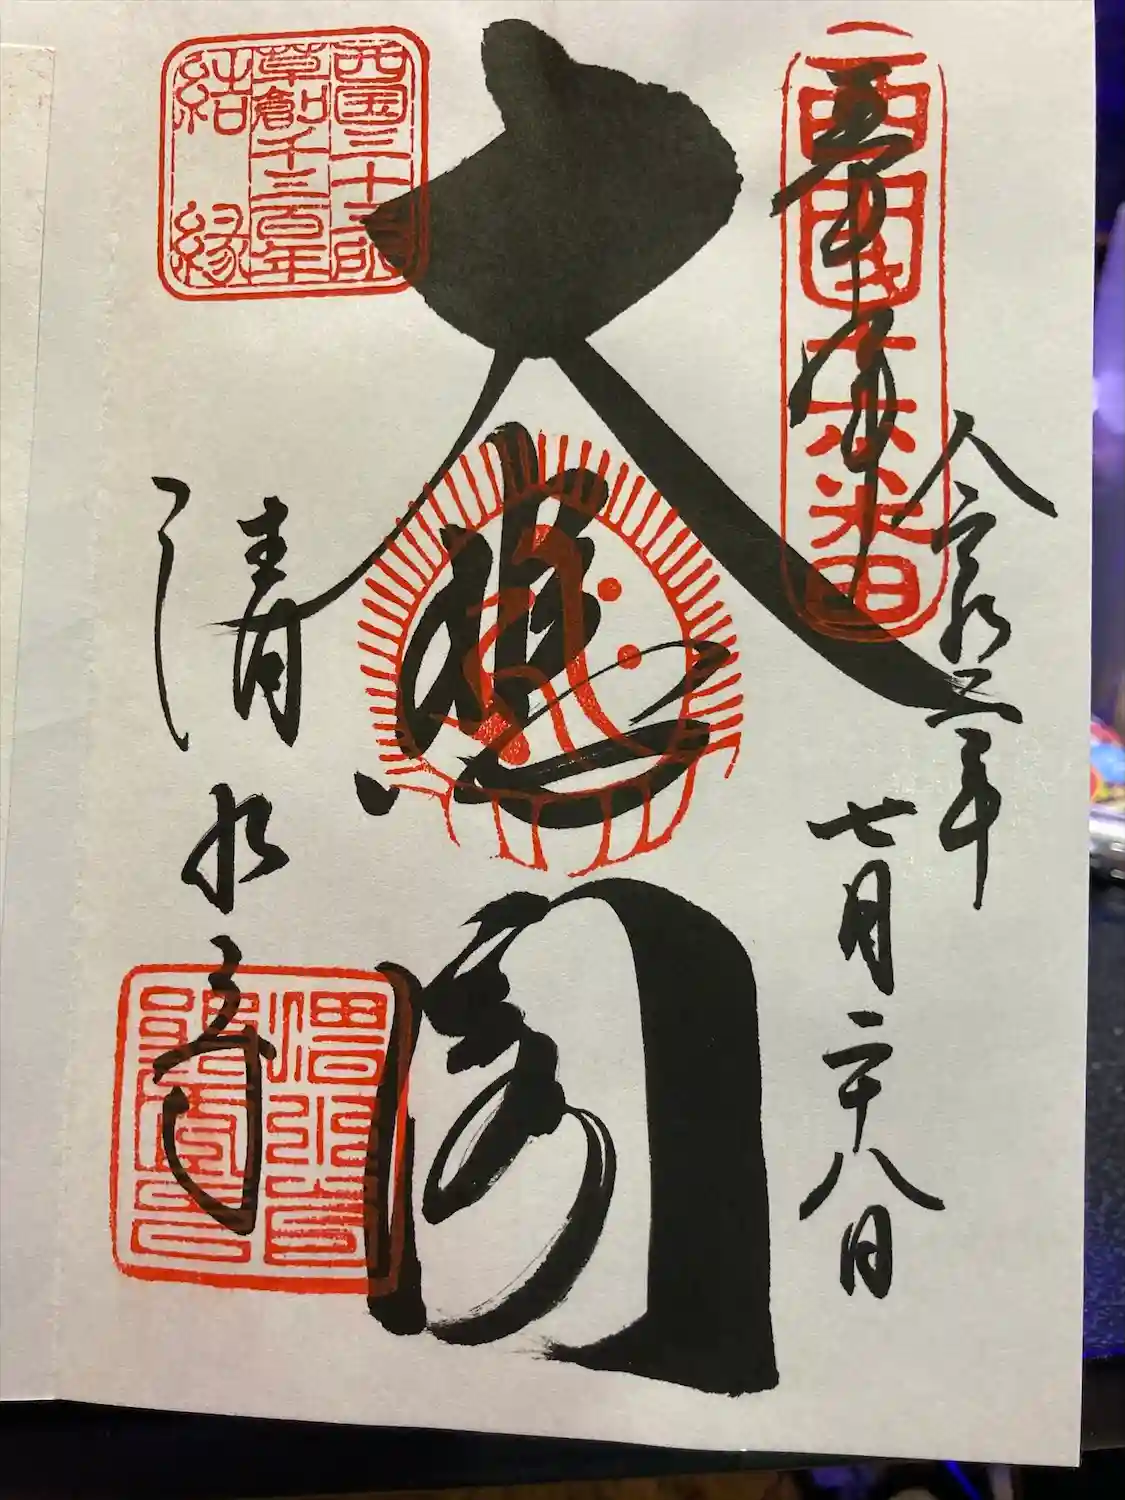 奉拝
西国十六番
令和二年
七月二十八日
西国三十三所
草創千三百年
結縁
大悲閣
清水寺